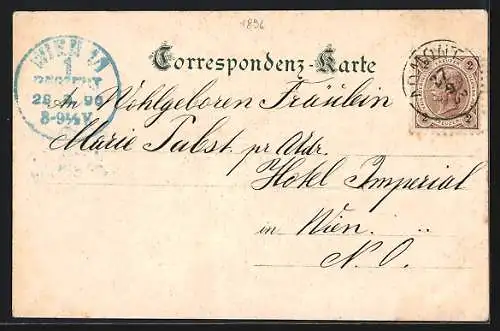 1896
WIEN 1/1
28 96
8-9½V
Correspondenz-Karte
ADMONT
2 2
An Wohlgeboren Fräulein
Marie Pabst pr Adr.
Hotel Imperial
in Wien.
N. O.